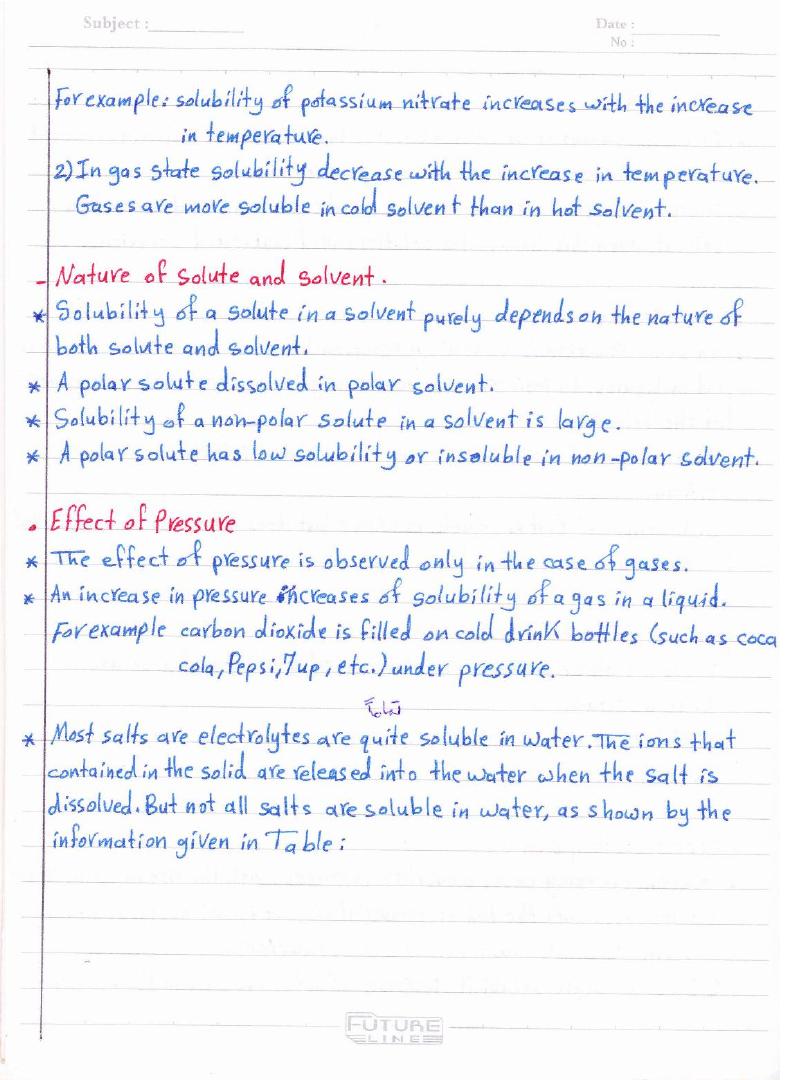 Subject :
Date :
No :
For example: solubility of potassium nitrate increases with the increase
in temperature.
2) In gas state solubility decrease with the increase in temperature.
Gases are more soluble in cold solvent than in hot solvent.
- Nature of solute and solvent.
* Solubility of a solute in a solvent purely depends on the nature of
both solute and solvent.
* A polar solute dissolved in polar solvent.
* Solubility of a non-polar solute in a solvent is large.
* A polar solute has low solubility or insoluble in non-polar solvent.
. Effect of Pressure
* The effect of pressure is observed only in the case of gases.
* An increase in pressure increases of solubility of a gas in a liquid.
For example carbon dioxide is filled on cold drink bottles (such as coca
cola, Pepsi, 7up, etc.) under pressure.
تماماً
* Most salts are electrolytes are quite soluble in water. The ions that
contained in the solid are released into the water when the salt is
dissolved. But not all salts are soluble in water, as shown by the
information given in Table :
FUTURE
LINE